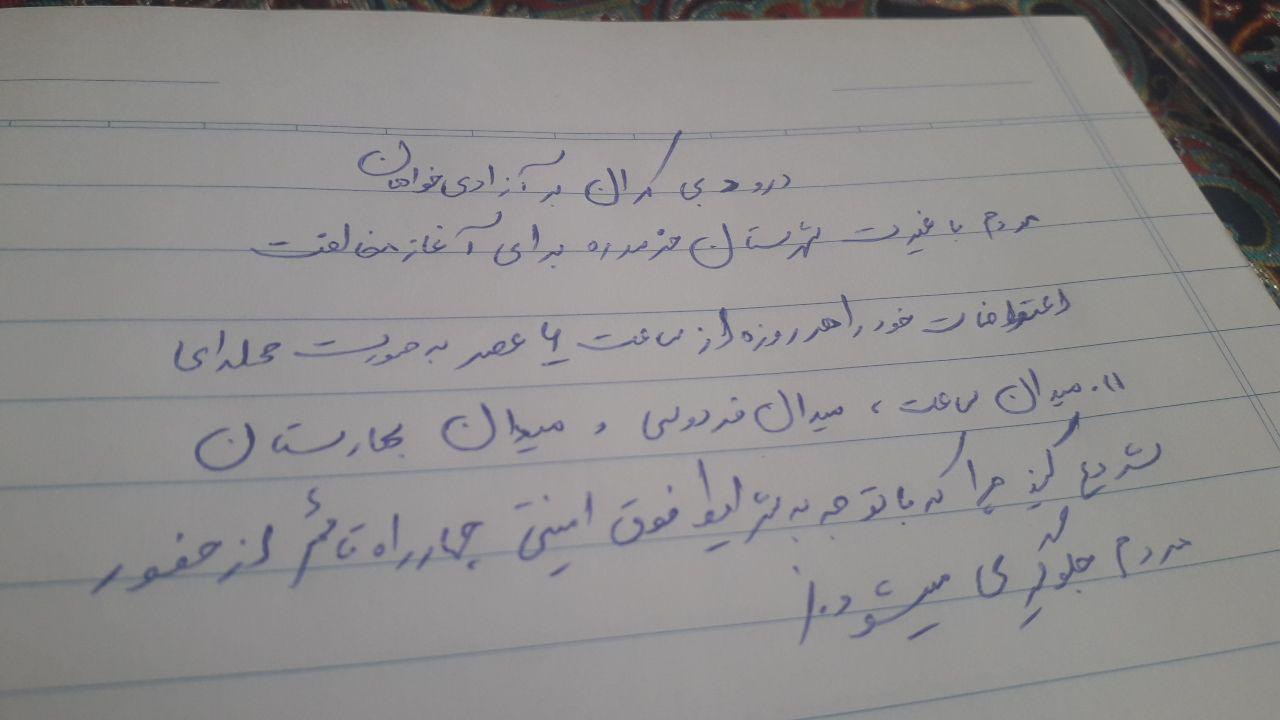 درود بی کران بر آزادی خواهان
مردم با غیرت شهرستان خرمدره برای آغاز مخالفت
اعتراضات خود را هر روزه از ساعت ۶ عصر به صورت محله ای
میدان ساعت ، میدان فردوسی و میدان بهارستان
شروع کنید چرا که با توجه به شرایط فوق امنیتی چهارراه قائم از حضور
مردم جلوگیری میشود.